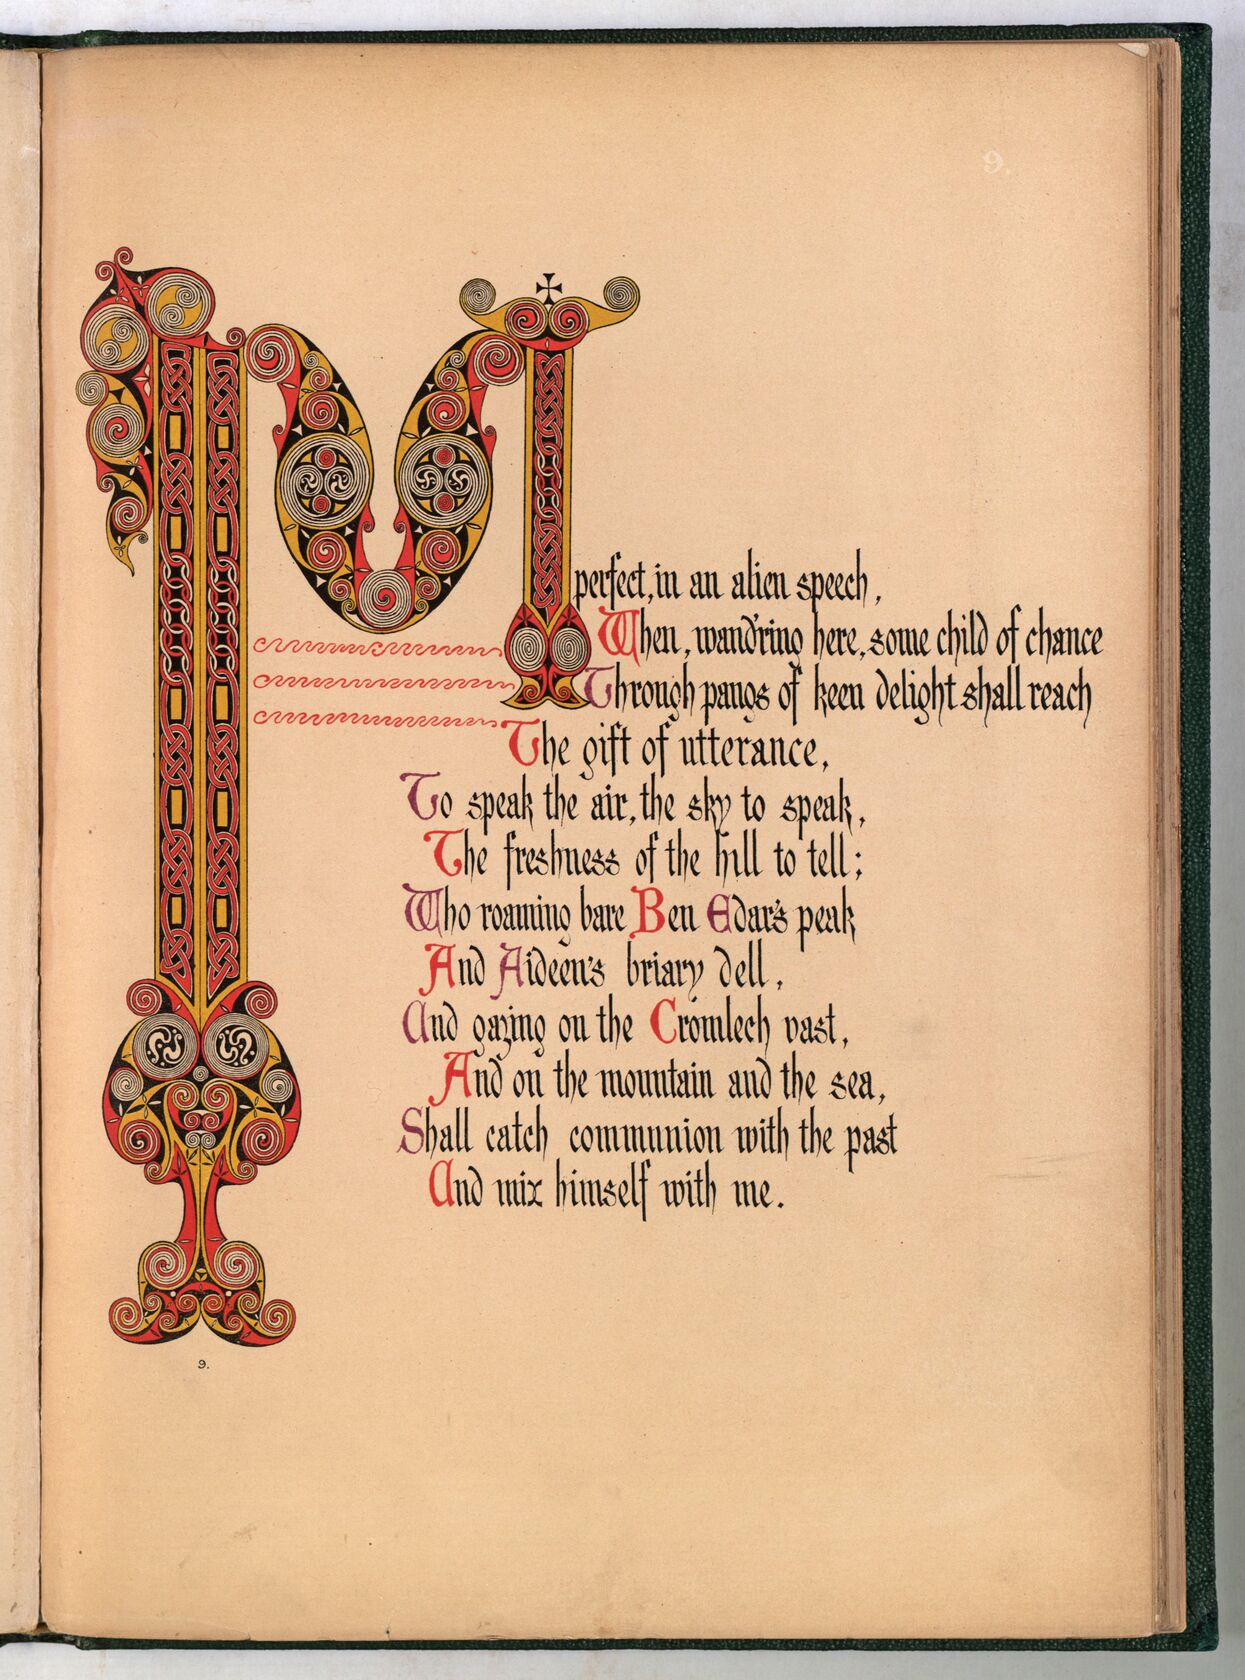 9.
IMperfect, in an alien speech,
When, wand'ring here, some child of chance
Through pangs of keen delight shall reach
The gift of utterance,
To speak the air, the sky to speak,
The freshness of the hill to tell;
Who roaming bare Ben Edar's peak
And Aideen's briary dell,
And gazing on the Cromlech vast,
And on the mountain and the sea,
Shall catch communion with the past
And mix himself with me.
9.